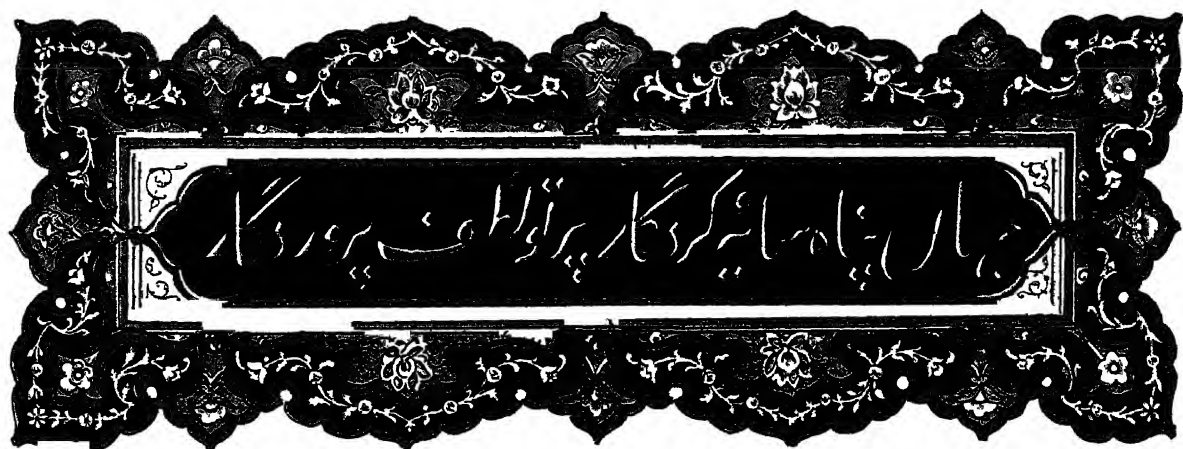 جهان پناه سایه کردگار پرتو الطاف پروردگار